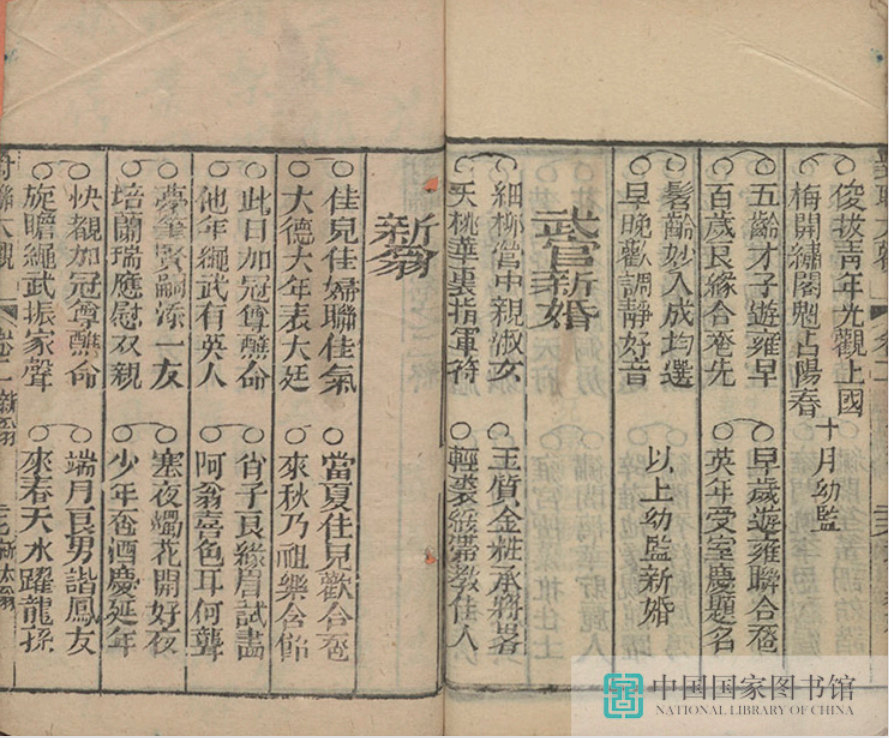 俊拔靑年光觀上國 十月幼監
梅開繡閣魁占陽春
五齡才子遊雍早 早歲遊雍聯合卺
百歲良緣合卺先 英年受室慶題名
髫齡妙入成均選
早晚歡調靜好音 以上幼監新婚
武官新婚
細柳營中親淑女 玉質金粧承將畧
夭桃華裏指軍符 輕裘緩帶敎佳人
新翁
佳兒佳婦聯佳氣 當夏佳兒歡合卺
大德大年表大廷 來秋乃祖樂含飴
此日加冠尊醮命 肖子良緣眉試畵
他年繩武有英人 阿翁喜色耳何聾
夢筆賢嗣添一友 塞夜燭花開好夜
培蘭瑞應慰双親 少年卺酒慶延年
快覩加冠尊醮命 端月良男諧鳳友
旋瞻繩武振家聲 來春天水躍龍孫
對聯大觀 卷二 新翁
中国国家图书馆
NATIONAL LIBRARY OF CHINA